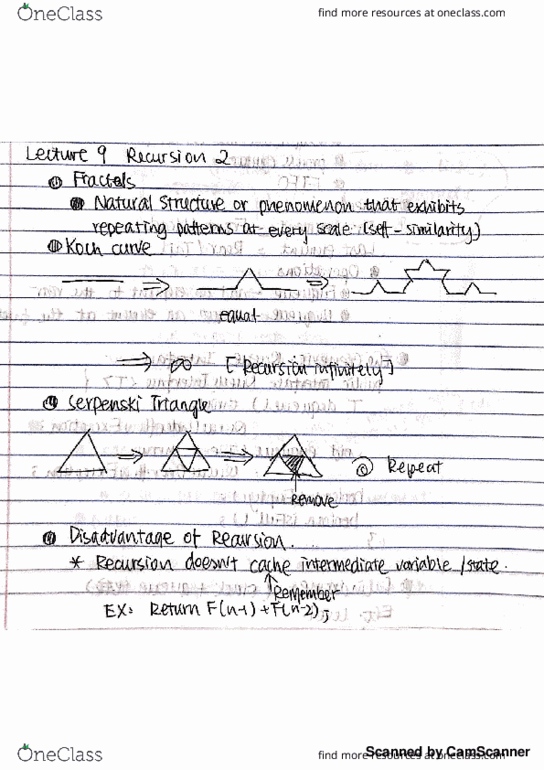 OneClass
find more resources at oneclass.com
Lecture 9 Recursion 2
Fractals
Natural structure or phenomenon that exhibits
repeating patterns at every scale (self-similarity)
Koch curve
equal
⇒ ∞ [Recursion infinitely]
Serpenski Triangle
Repeat
Remove
Disadvantage of Recursion.
* Recursion doesn't cache intermediate variable /state.
Remember
EX: Return F(n-1)+F(n-2);
OneClass
find more resources at oneclass.com
Scanned by CamScanner